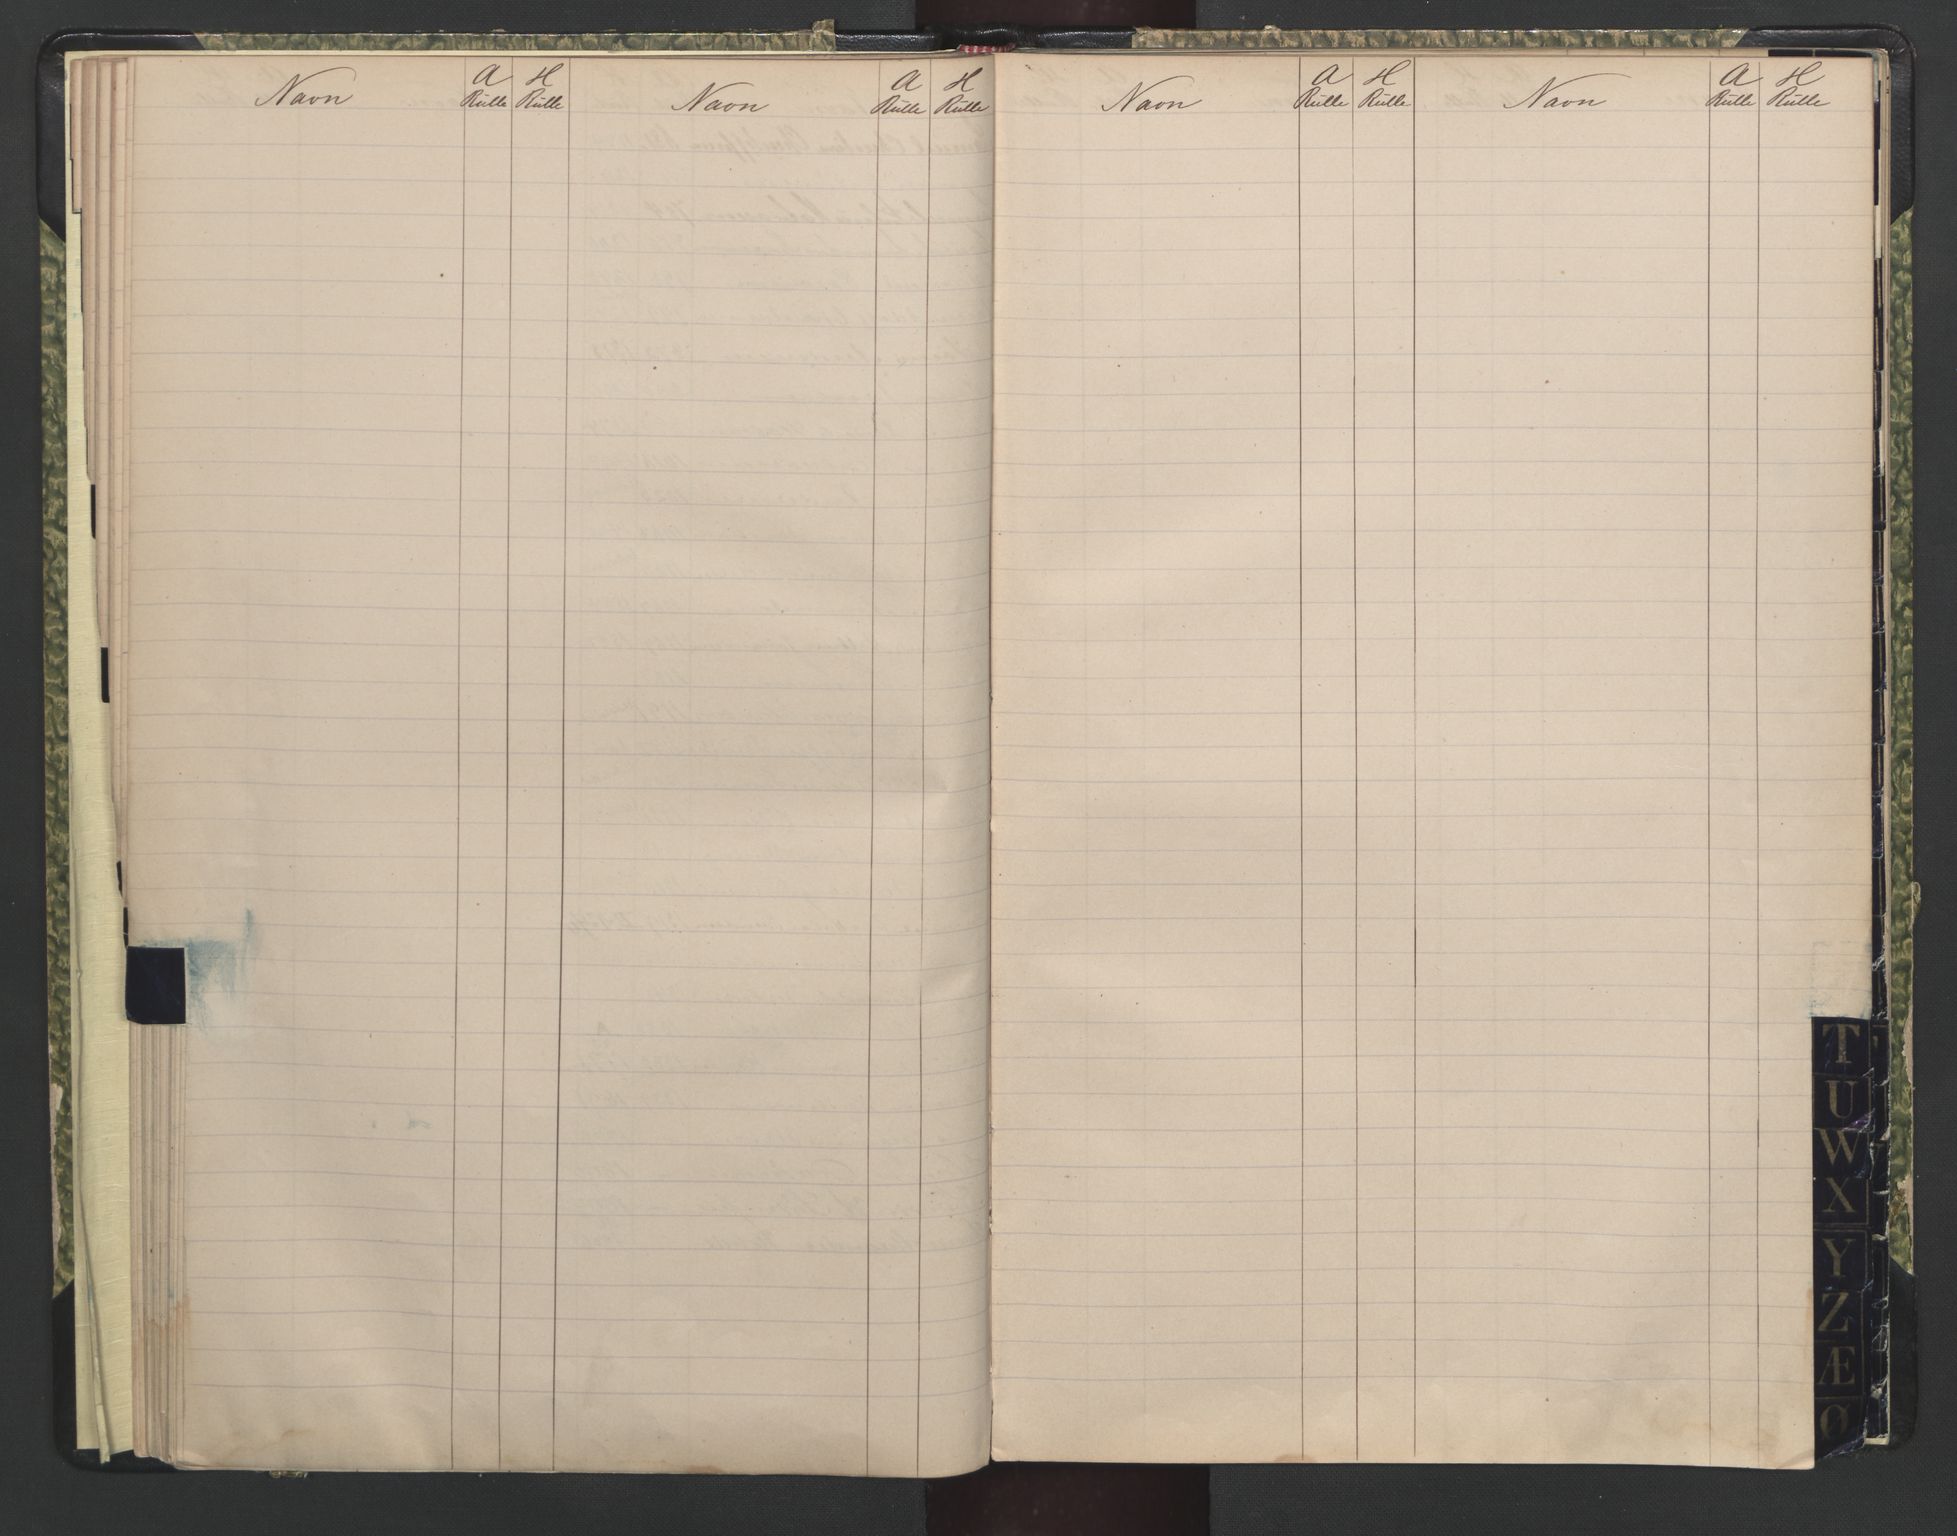 Navn A Rulle H Rulle Navn A Rulle H Rulle
Navn A Rulle H Rulle Navn A Rulle H Rulle
T
U
W
X
Y
Z
Æ
Ø